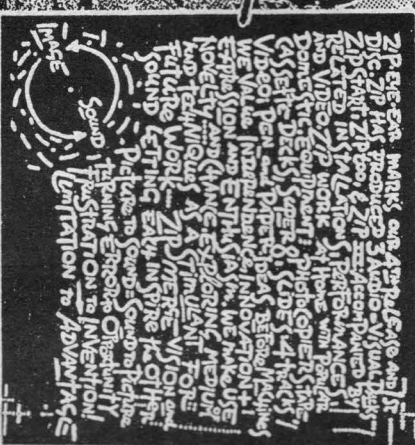 ZIP EYE-EAR MARKS OUR 4TH RELEASE AND 1ST
DISC. ZIP HAS PRODUCED 3 AUDIO-VISUAL PACKS
ZIP CHART, ZIP TOO, & ZIP III ACCOMPANIED BY
RELATED INSTALLATIONS PERFORMANCES
AND VIDEO. ZIP WORK AT HOME WITH POPULAR
DOMESTIC EQUIPMENT: PHOTOCOPIERS/
CASSETTE DECKS/SUPER 8/SLIDES/4 TRACKS/
VIDEO/ PAPER. IDEAS BEFORE MACHINES
WE VALUE INDEPENDENCE, INNOVATION +
EXPRESSION AND ENTHUSIASM. WE MAKE USE
NOVELTY... AND CHANCE, EXPLORING MEDIUM
AND TECHNIQUES AS A STIMULENT FOR:
FUTURE WORK — ZIP MERGE-VISION AND
SOUND LETTING EACH INSPIRE THE OTHER
PICTURE TO SOUND = SOUND TO PICTURE
TURNING ERROR TO OPPORTUNITY
FRUSTRATION TO INVENTION
LIMITATION TO ADVANTAGE
IMAGE
SOUND